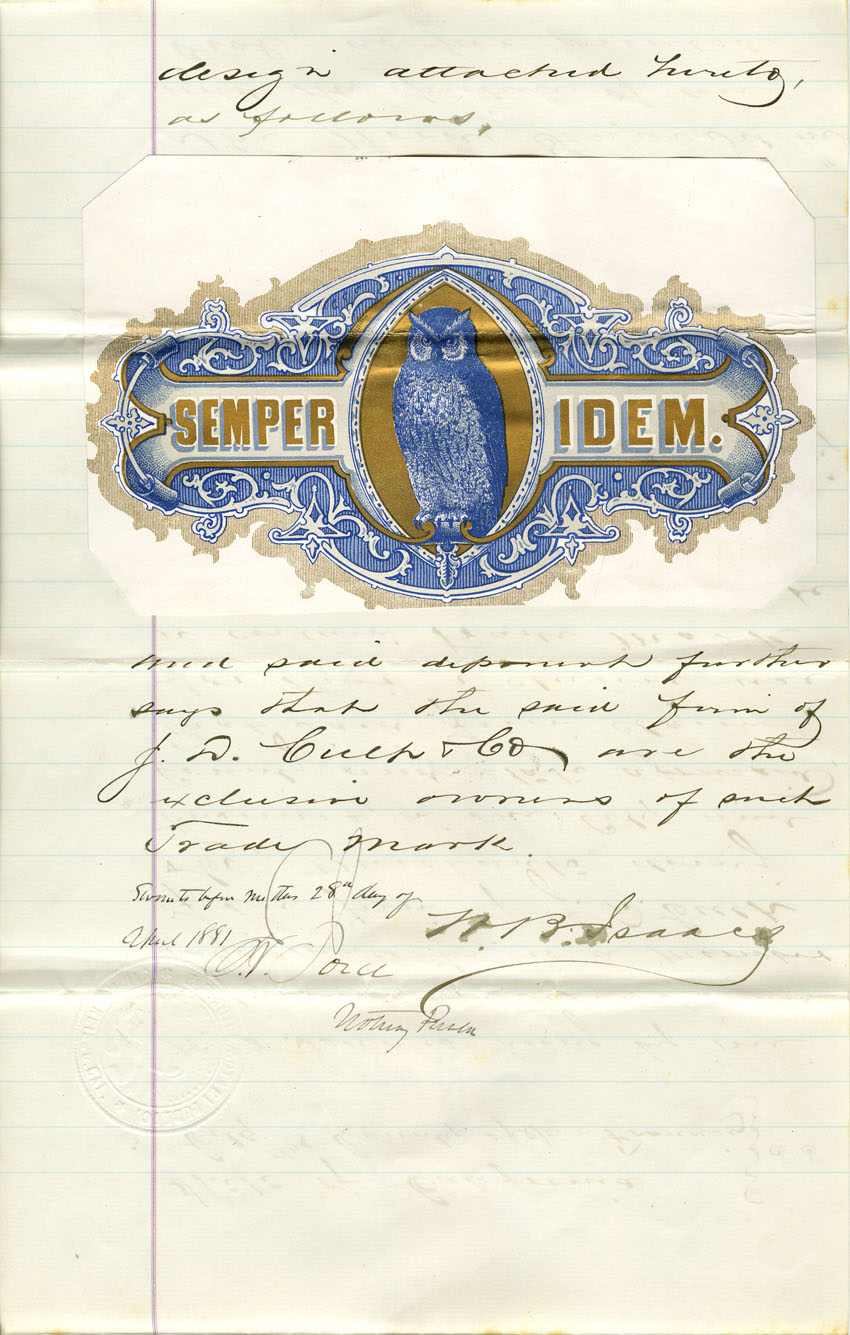 design attached hereto,
as follows,
SEMPER IDEM.
and said deponent further
says that the said firm of
J. D. Culp & Co are the
exclusive owners of such
Trade Mark.
Sworn to before me this 28th day of
April 1881
W. B. Isaacs
Notary